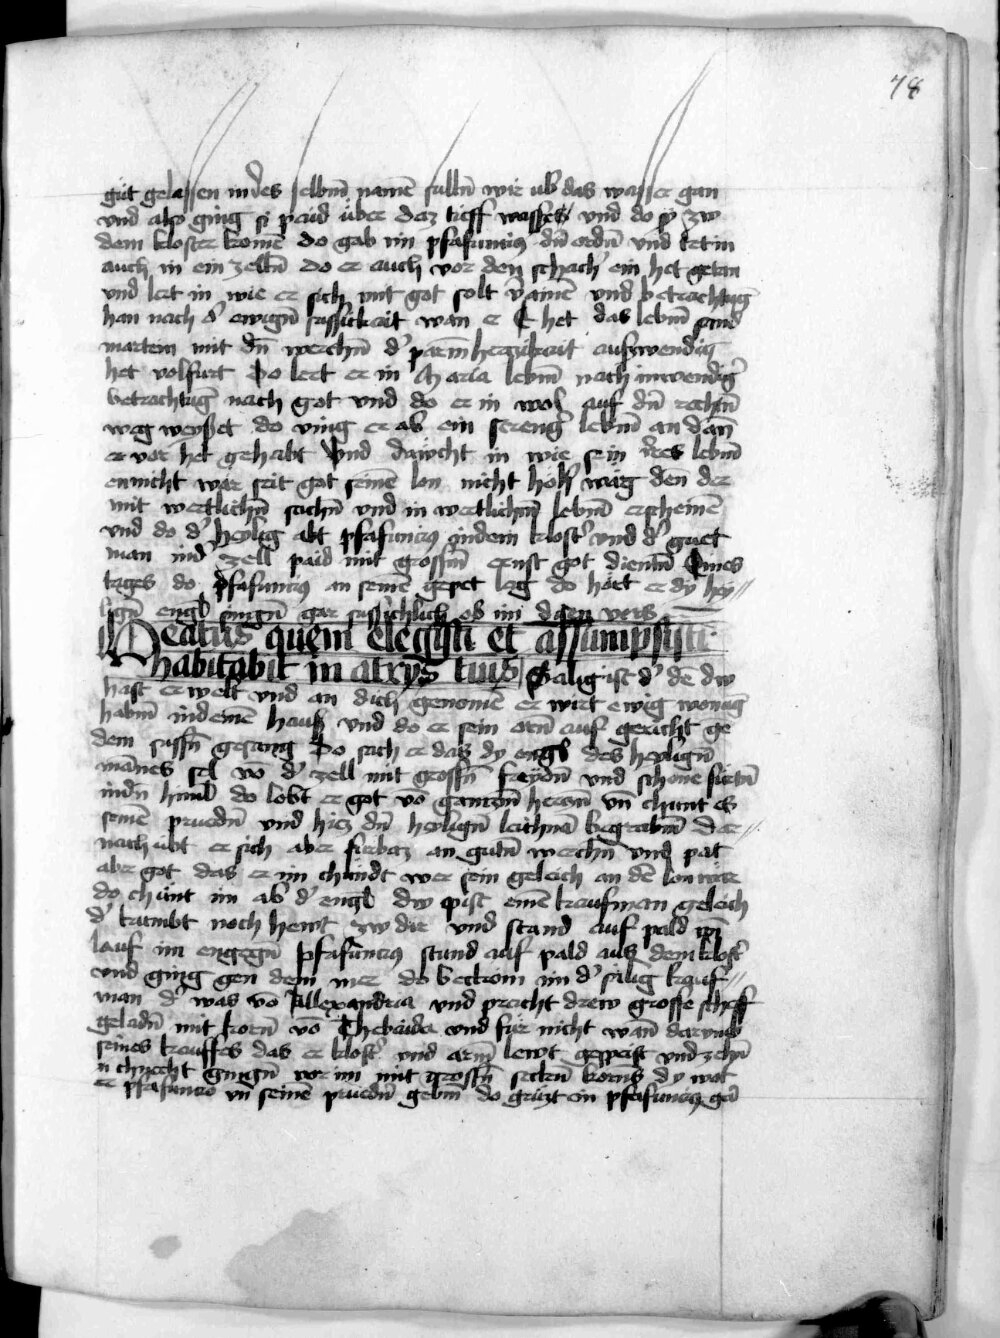 78
gůt gelassen in des selbm̄ namē sulln̄ wir ub̾ das wasser gan
vnd also ging si paid über daz tieff wasser vnd do sy zw
dem kloster komē do gab im pfafuncius dn̄ ordn̄ vnd let in
auch in ein zelln̄ do er auch vor den schach̾ ein het getan
vnd lert in wie er sich mit got solt v̾ainē vnd betrachtūg
han nach d̾ ewign̄ sussickait wan er het das lebm̄ sand
martem mit dn̄ werchn̄ d̾ parmherczikait auswendig
het volfurt Do lert er in Maria lebm̄ nach inwendig̾
betrachtūg nach got vnd do er in wol auf dn̄ rechtn̄
weg weyset do ving er ab̾ ein streng̾ lebm̄ an dan̄
er vor het gehabt Vnd dawcht in wie sein v̾res lebm̄
ennicht wär seit got seinē lon nicht höh̾ wäg den̄ der
mit wertlichn̄ sachn̄ vnd in wertlichm̄ lebm̄ erscheinē
vnd do d̾ heylig abt pfafuncius in dem klost̾ vnd d̾ guet
man in d̾ zell paid mit grossm̄ ernst got dientn̄ Eines
tages do pfafuncius an seinē gepet lag do hört er dy hey//
lign̄ engl̄ singn̄ gar sussichlich ob im disen vers
Beatus quem elegisti et assumpsisti
habitabit in atrys tuis Salig ist d̾ dē dw
hast er welt vnd an dich genomē er wirt ewig wonūg
habm̄ in deinē haus vnd do er sein orn̄ auf gericht ge
dem sussn̄ gesang Do sach er daz dy engl̄ des heylign̄
mānes sel vō d̾ zell mit grossn̄ freydn̄ vnd schone fürtn̄
in dn̄ himl̄ do lobt er got vō ganczm̄ herczn̄ vn̄ chunt es
seinē pruedn̄ vnd hiez dn̄ heylign̄ leichnā begrabm̄ Dar//
nach übt er sich aber fürbaz an gutn̄ werchn̄ vnd pat
aber got das er im chündt wer sein geleich an dē lon wär
do chünt im ab̾ d̾ engl̄ dw pist einē kaufman geleich
d̾ kumbt noch hewt zw dir vnd stand auf pald vn̄
lauf im engegn̄ pfafuncius stund auf pald aus dem klost̾
vnd ging gen dem mer do bekom im d̾ sälig kauf//
man d̾ was vō Allexandria vnd pracht drew grosse scheff
geladn̄ mit korn̄ vō Thebaida vnd für nicht wan̄ darumb
seines kauffes das er klost̾ vnd arm̄ lewt gespeist vnd zehn̄
chnecht gingn̄ vor im mit grossn̄ seckn̄ korns dy wolt
er pfafuncio vn̄ seinē pruedn̄ gebm̄ do grüzt in pfafuncius gar